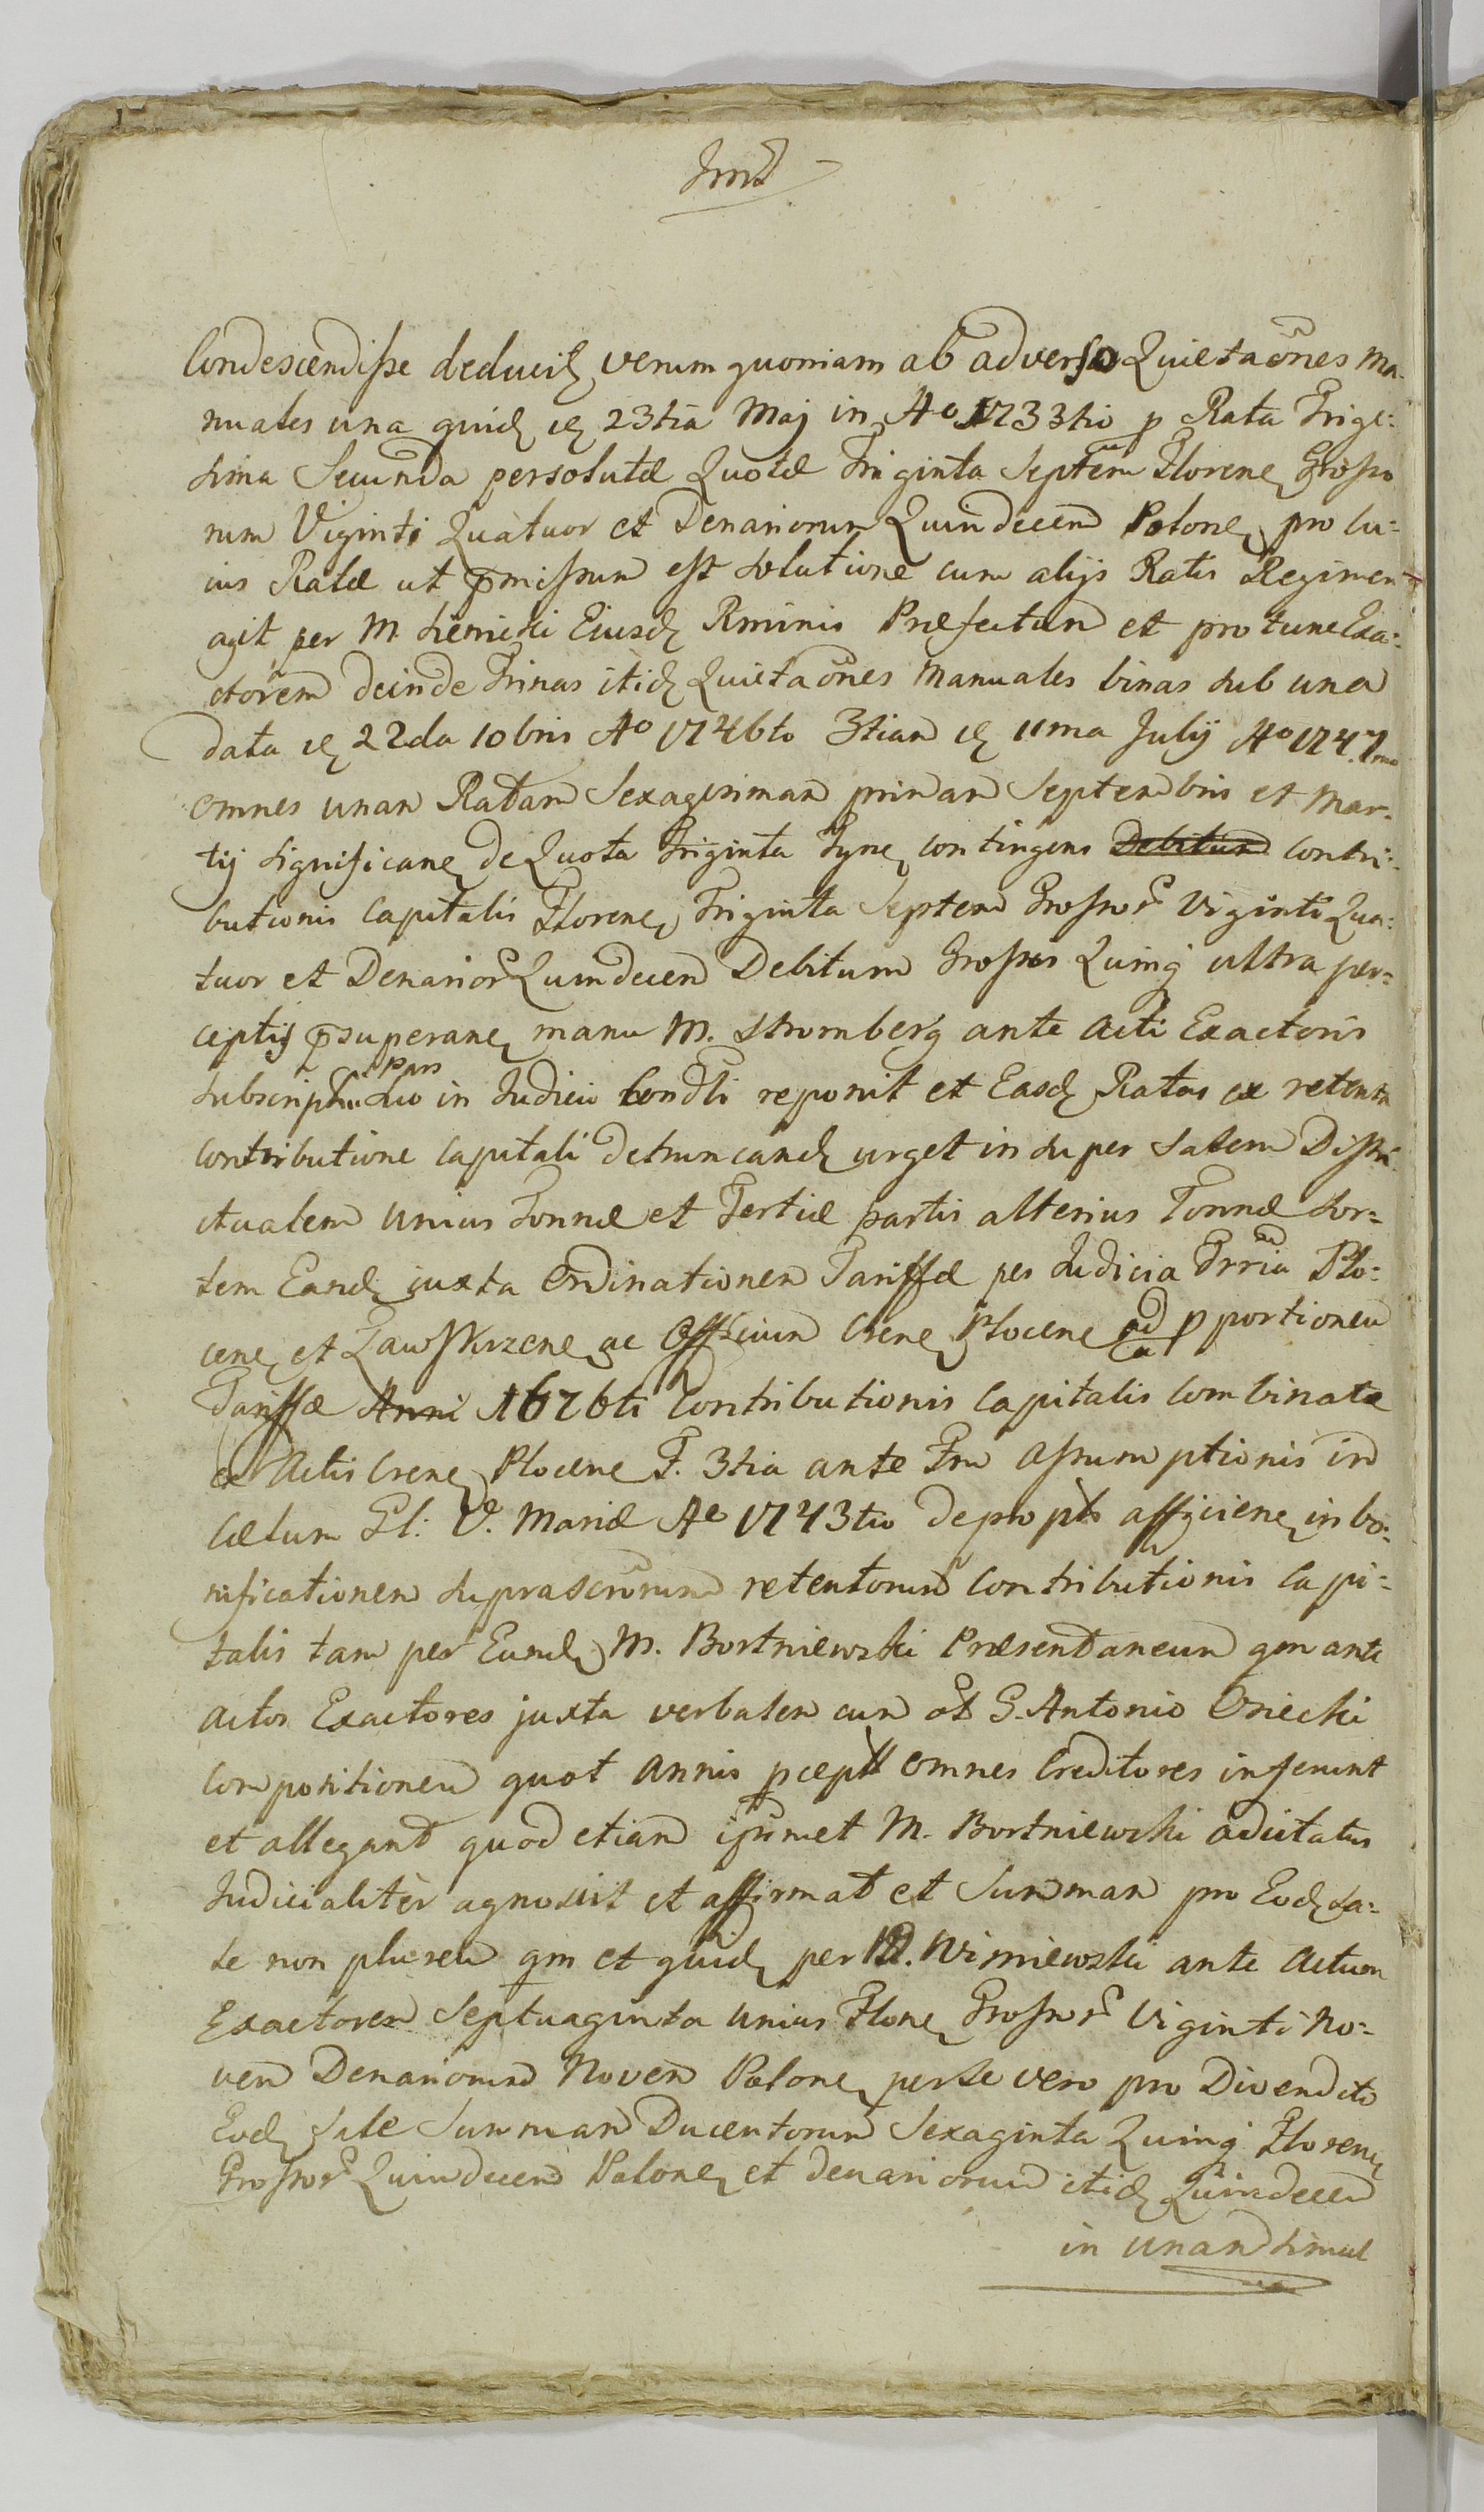 Condescendisse deducit, verum quoniam ab adverso Quietaōnes Ma-
nuales una quid de 23tia Maj in Ao 1733tio p Rata Trige-
sima Secunda persolutæ Quotæ Triginta Septem Floren Grosso
rum Viginti Quatuor et Denariorum Quindecem Polone pro cu-
ius Ratæ ut pmissum est solutione cum alijs Ratis Regimen
agit per M. Eiusd Rminis Præfectum et pro tunc Exa-
ctorem deinde Trinas itid Quietaōnes Manuales binas sub una
data de 22da 10bris Ao 1746to 3tiam de 11ma Julij Ao 1747mo
omnes unam Ratam Sexagesimam primam Septembris et Mar-
tij significan de Quota Triginta Tyne contingens Debitum Contri-
butionis Capitalis Floren Triginta Septem Grossor Viginti Qua-
tuor et Denarior Quindecem Debitum Grossis Quinq ultra per-
ceptis psuperan manu M. Stromberg ante acti Exactoris
subscriptas pars suo in Judicio Condli reponit et Easd Ratas ex retenta
Contributione Capitali detruncand urget insuper Salem Distri-
ctualem unius Tonnæ et Tertiæ partis alterius Tonnæ Sor-
tem Eand juxta Ordinationem Tariffæ per Judicia Trria Plo-
cen et Zawskrzen ac Officium Cnen Plocen ad pportionem
Tariffæ Anni 1676ti Contributionis Capitalis Combinatæ
ex Actis Cnen Plocen F. 3tia ante Fm Assumptionis in
Cælum Gl: V. Mariæ Ao 1743tio deprompts afficien in bo-
nificationem suprascrōrum retentorum Contributionis Capi-
talis tam per Eund M. Bortniewski Præsentaneum qm ante
actos Exactores juxta verbalem cum ol G. Antonio Osiecki
Compositionem quot annis pcept omnes Creditores inferunt
et allegant quod etiam ipsimet M. Bortniewski adcitatus
Judicialiter agnoscit et affirmat et Summam pro Eod Sa-
le non plurem qm et quid per M. Wisniewski ante actum
Exactorem Septuaginta unius Flone Grossor Viginti No-
vem Denariorum Novem Polone per se vero pro Divendito
Eod Sale Summam Ducentorum Sexaginta Quinq Floren
Grossor Quindecem Polone et denariorum itid Quindecem
in unam simul